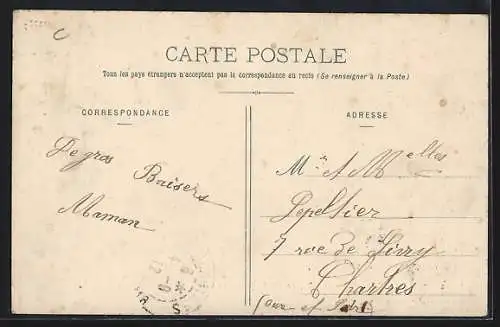 CARTE POSTALE
Tous les pays étrangers n'acceptent pas la correspondance au recto (Se renseigner à la Poste)
CORRESPONDANCE
ADRESSE
De gros Baisers
Maman
M et Melles
Lepeltier
7 rue de
Chartres